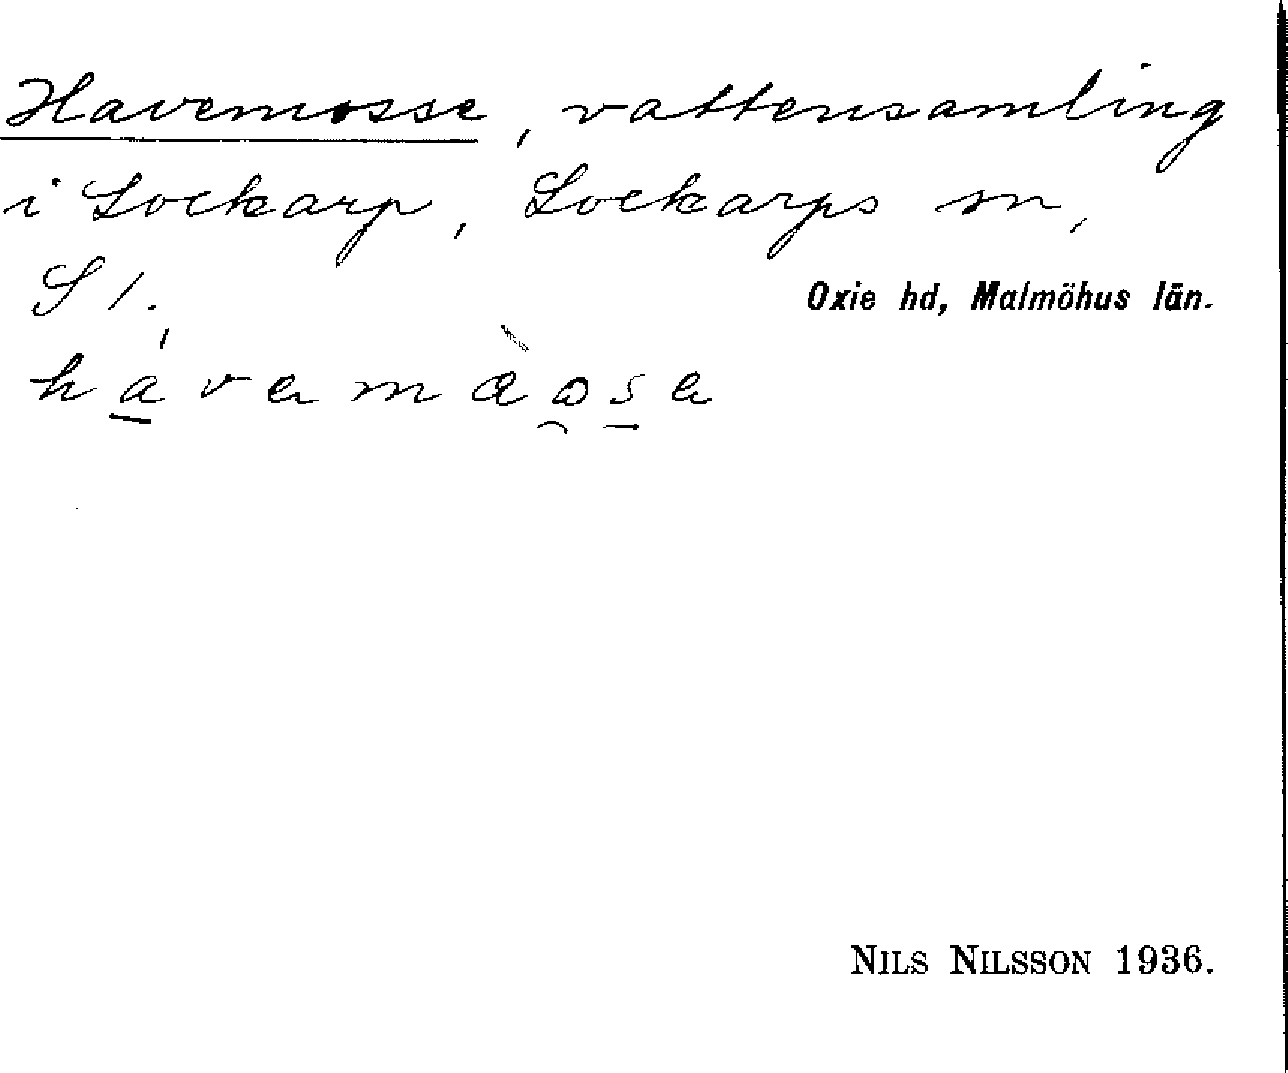 Havemosse, vattensamling
i Lockarp, Lockarps sn,
S 1.
Oxie hd, Malmöhus län.
NILS NILSSON 1936.